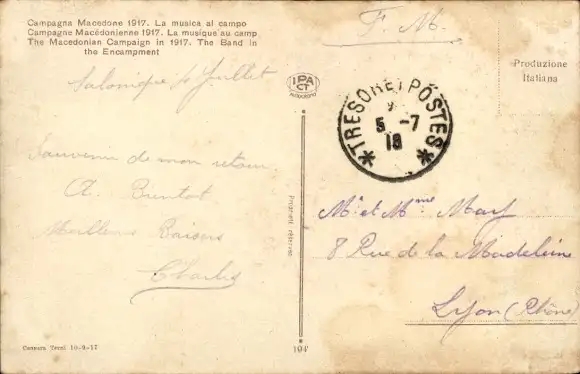 Campagna Macedone 1917. La musica al campo
Campagne Macédonienne 1917. La musique au camp
The Macedonian Campaign in 1917. The Band in
the Encampment
Salonique 4 Juillet
Souvenir de mon retour
A
Meilleurs Baisers
Charles
Censura Terni 10-9-17
IPA
CT
Proprieté réservée
194
F. M.
TRESOR ET POSTES
5 -7
18
Produzione
Italiana
Mr et Mme May
8 Rue de la Madeleine
Lyon (Rhône)